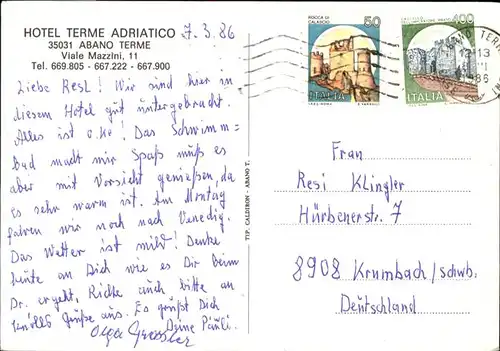 HOTEL TERME ADRIATICO
35031 ABANO TERME
Viale Mazzini, 11
Tel. 669.805 - 667.222 - 667.900
7.3.86
Liebe Resl! Wir sind hier in
diesem Hotel gut untergebracht.
Alles ist o.ko! Das Schwimm=
Bad macht mir Spaß muß es
aber mit Vorsicht genießen, da
es sehr warm ist. Am Montag
fahren wir noch nach Venedig.
Das Wetter ist mild! Denke
heute an Dich wie es Dir beim
Dr. ergeht, Richte auch bitte an
Grüße aus. Es grüßt Dich
Deine Pauli.
Olga
TIP. CALDERON - ABANO T.
ROCCA DI
CALASCIO
50
ITALIA
400
ITALIA
ABANO TERME
12-13
86
Frau
Resi Klingler
Hürbenerstr. 7
8908 Krumbach/schwb.
Deutschland